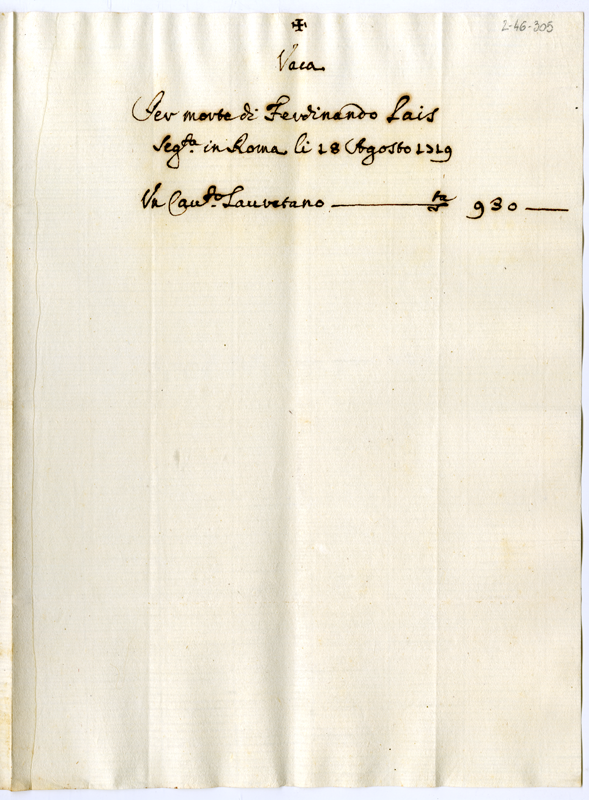 2-46-305
✠
Vaca
Per morte di Ferdinando Lais
Seg.ta in Roma li 18 Agosto 1719
Un Cau.to Lauretano 930